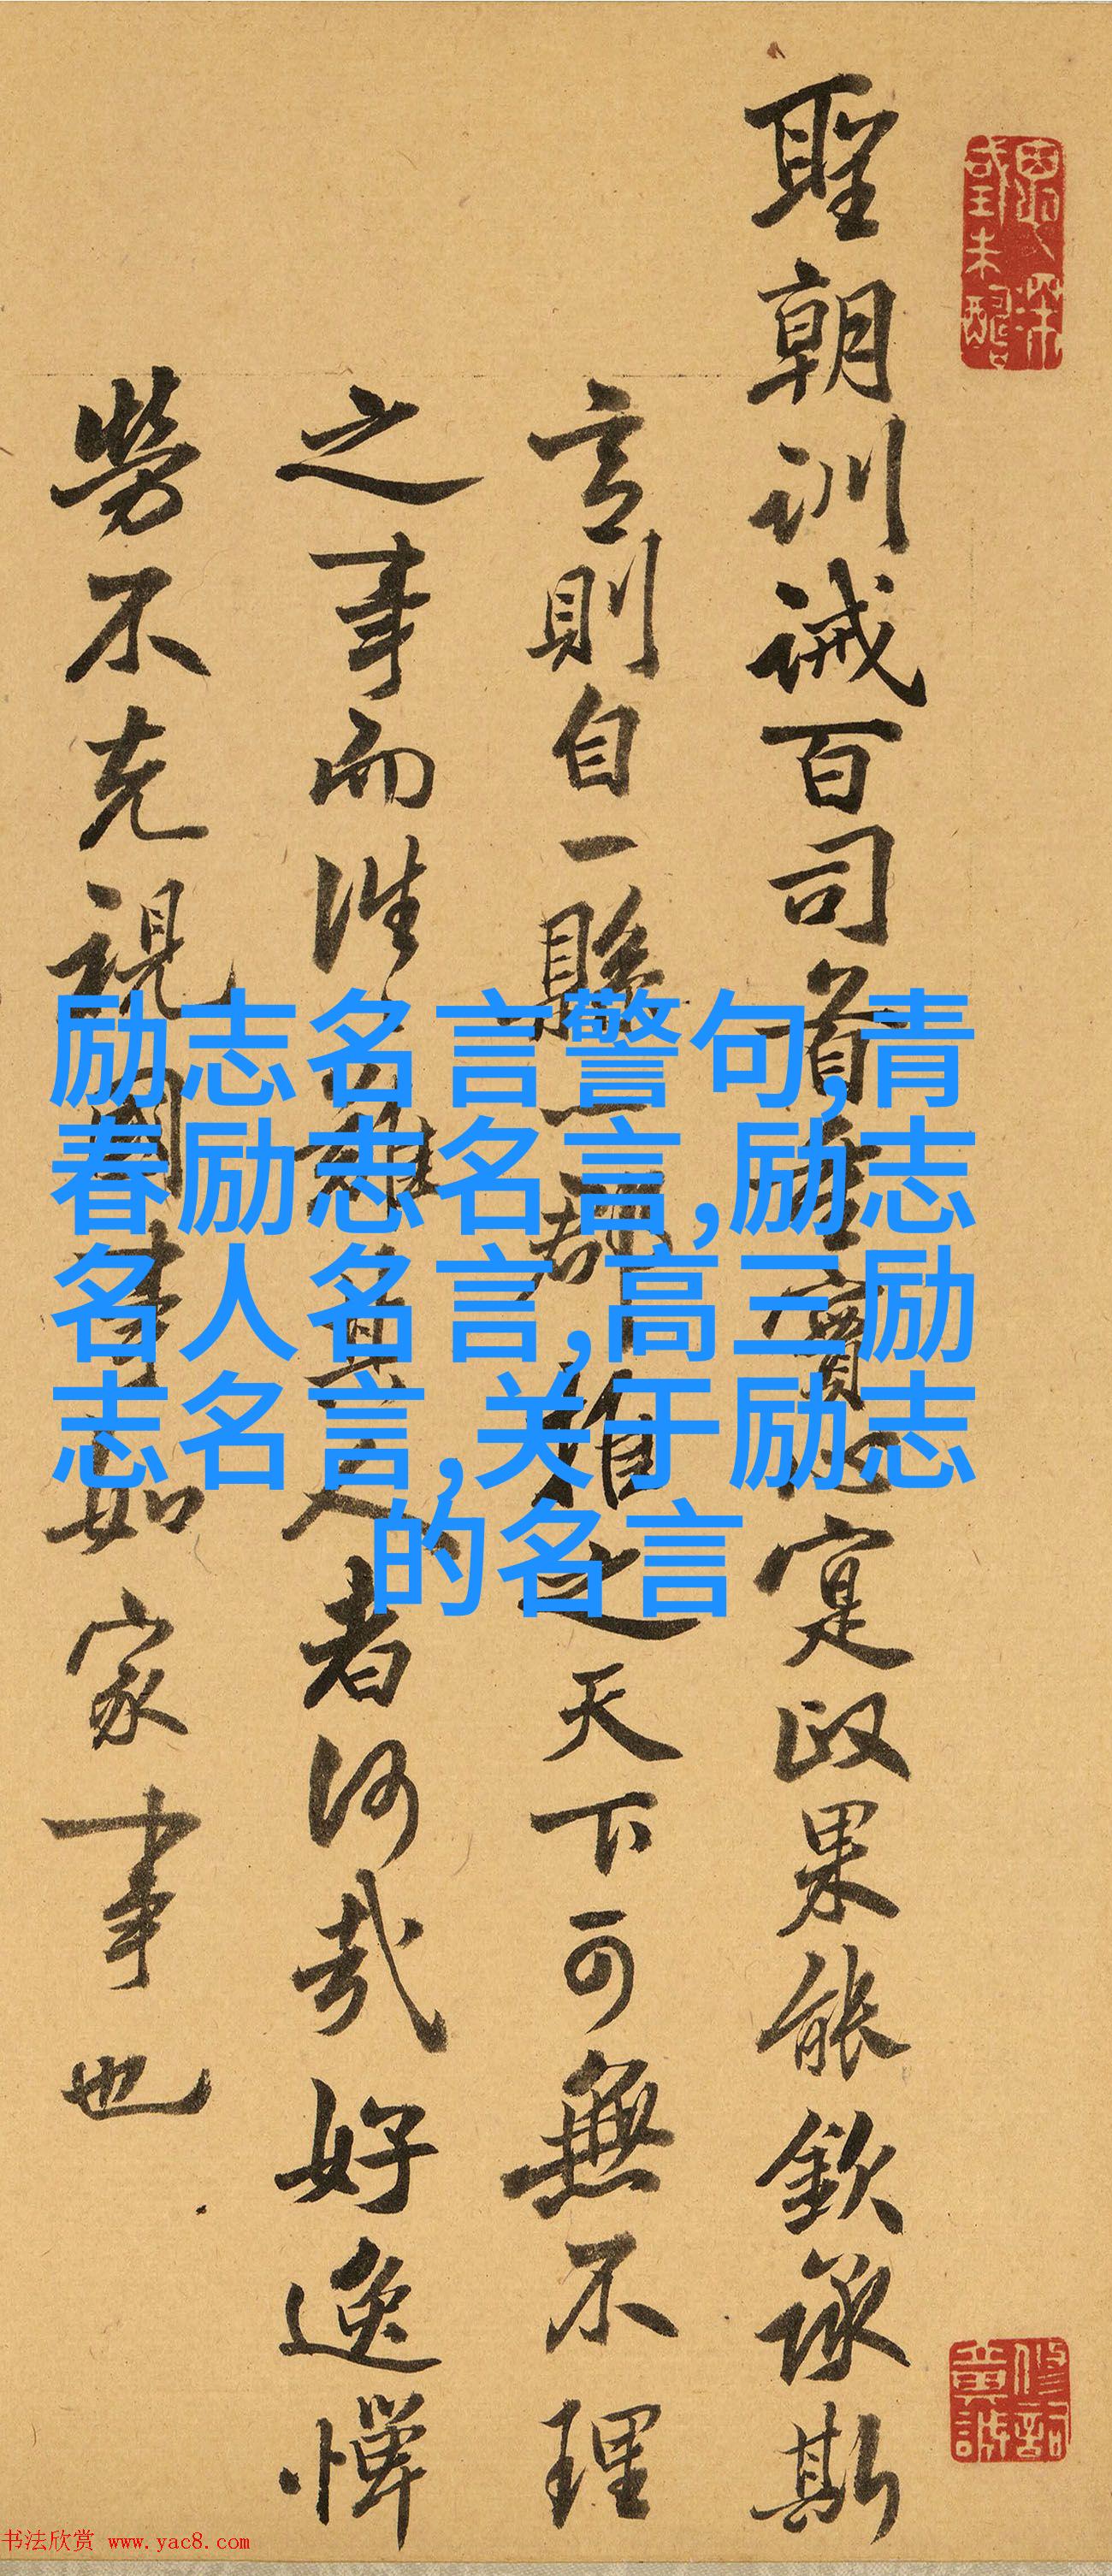 聖朝訓誡百司首重實心寔政果能欽承斯
言則自一縣一郡推之天下可無不理
之事而往難其人者何哉好逸憚
勞不克視國事如家事也
励志名言警句,青
春励志名言,励志
名人名言,高三励
志名言,关于励志
的名言
书法欣赏 www.yac8.com